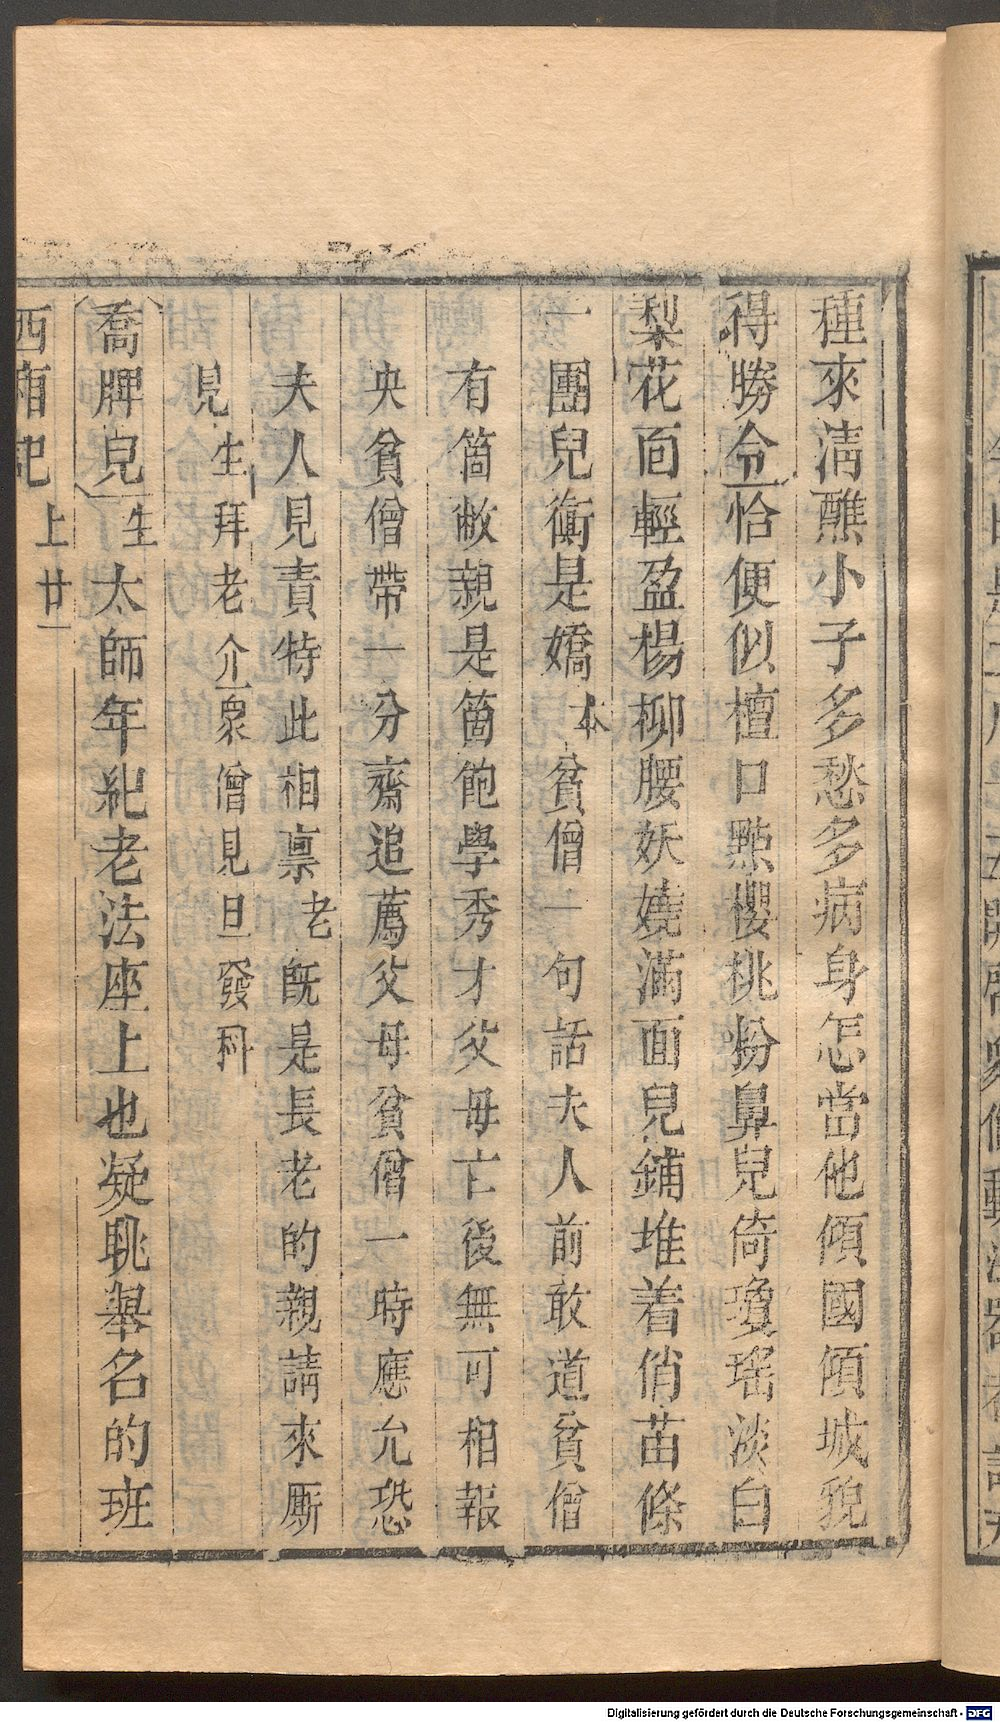 種來清醮小子多愁多病身怎當他傾國傾城貌
得勝令恰便似檀口點櫻桃粉鼻兒倚瓊瑤淡白
梨花面輕盈楊柳腰妖嬈滿面兒鋪堆着俏苗條
一團兒衠是嬌本貧僧一句話夫人前敢道貧僧
有箇敝親是箇飽學秀才父母亡後無可相報
央貧僧帶一分齋追薦父母貧僧一時應允恐
夫人見責特此相禀老既是長老的親請來厮
見生拜老介衆僧見旦發科
喬牌兒生太師年紀老法座上也凝眺舉名的班
西廂記上廿一
Digitalisierung gefördert durch die Deutsche Forschungsgemeinschaft - DFG